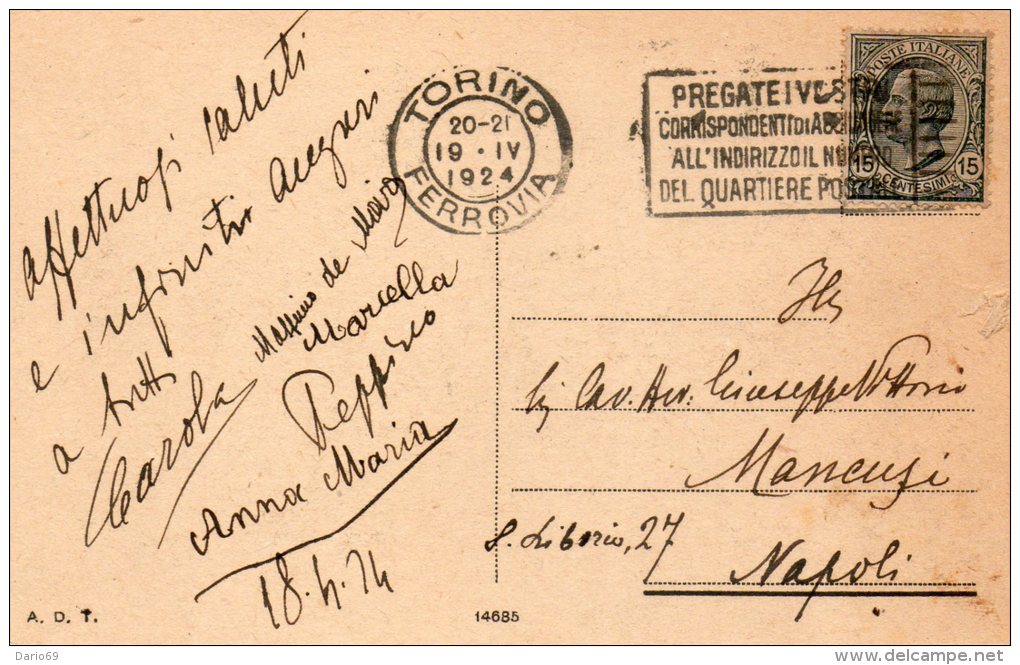 affettuosi saluti
e infiniti auguri
a tutti
Carola
Massimo de
Marcella
Peppino
Anna Maria
18.4.24
TORINO
20-21
19 · IV
1924
FERROVIA
PREGATE I VOSTRI
CORRISPONDENTI DI
ALL'INDIRIZZO IL NUMERO
DEL QUARTIERE
POSTE ITALIANE
15 CENTESIMI 15
Cav. Avv. Giuseppe Vittorio
Mancusi
S. Liborio, 27
Napoli
A. D. T.
14685
Dario69
www.delcampe.net